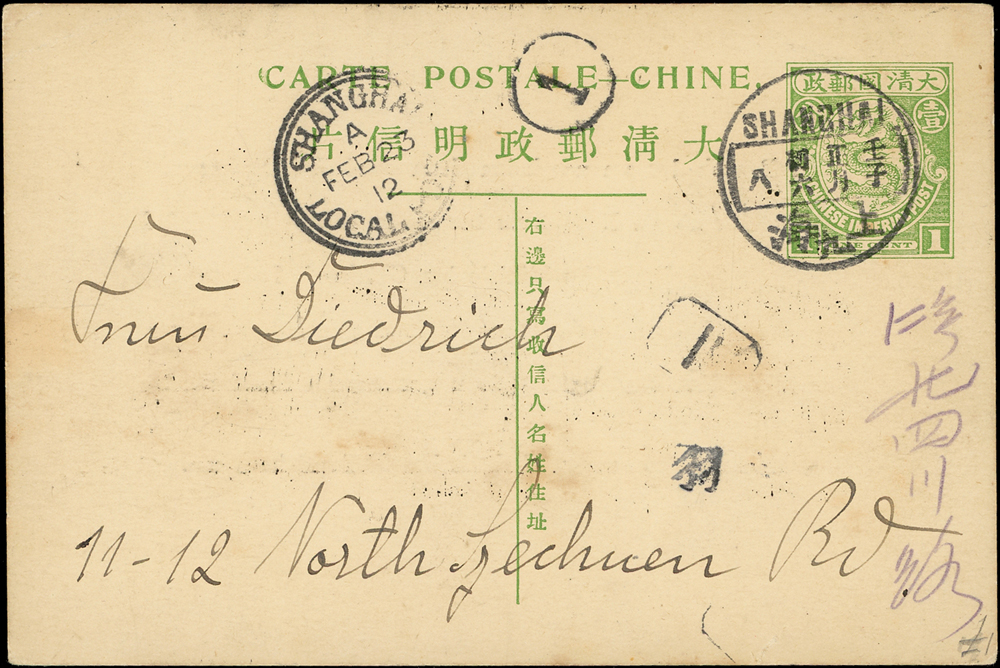 CARTE POSTALE—CHINE.
大清郵政明信片
大清國郵政
壹
CHINESE IMPERIAL POST
ONE CENT
1
SHANGHAI
A
FEB 23
12
LOCAL POST
1
SHANGHAI
壬子
正月
初六
八
上海
右邊只寫收信人名姓住址
Frau Diedrich
11-12 North Szechuen Rd
北四川路